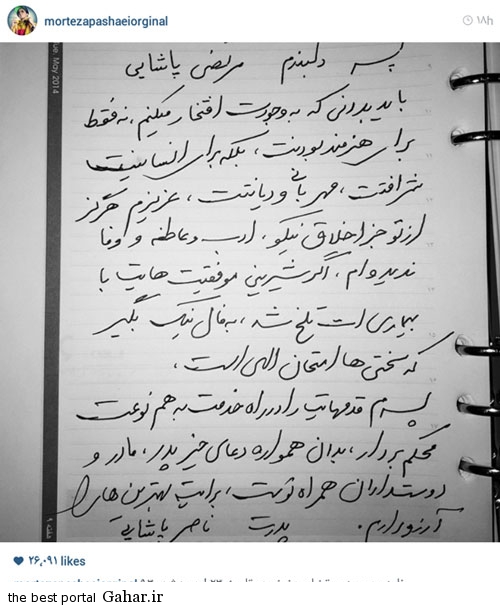 mortezapashaeiorginal
۱۸h
Tue. May 2014
پسر دلبندم مرتضی پاشایی
باید بدونی که به وجودت افتخار میکنیم، نه فقط
برای هنرمند بودنت، بلکه برای انسانیت
شرافتت، مهربانی و دیانتت، عزیزم هرگز
از تو جز اخلاق نیکو، ادب و عاطفه و وفا
ندیده ام، اگر شیرینی موفقیت هایت با
بیماری ات تلخ شد، به فال نیک بگیر
که سختی ها امتحان الهی است،
پسرم قدمهایت را در راه خدمت به هم نوعت
محکم بردار، بدان همواره دعای خیر پدر، مادر و
دوستداران همراه توست، برایت بهترین ها را
آرزو دارم. پدرت ناصر پاشایی
هفته ۹
۲۶,۰۹۱ likes
the best portal Gahar.ir